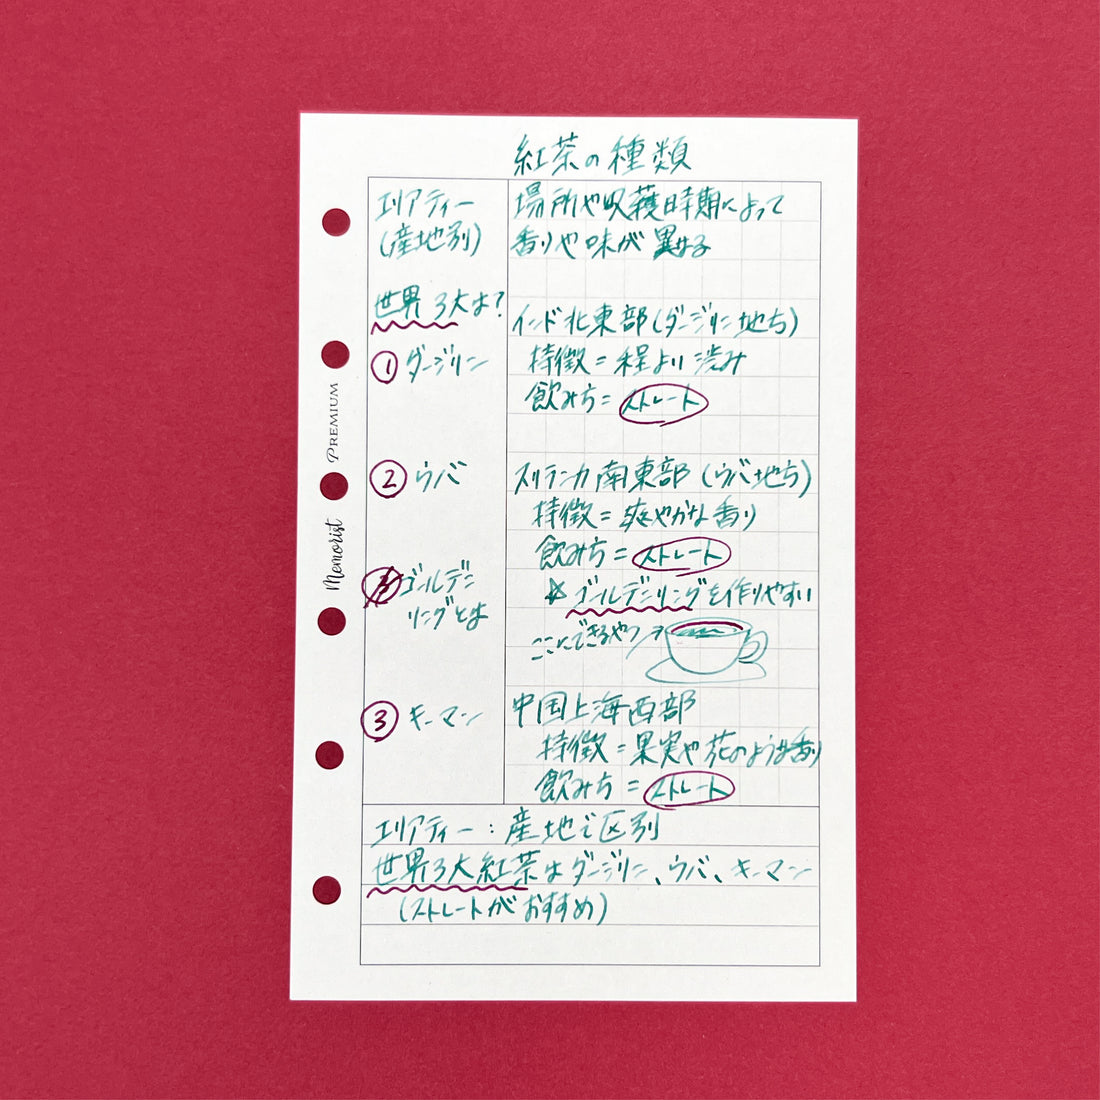 紅茶の種類
エリアティー
(産地別)
場所や収穫時期によって
香りや味が異なる
世界3大は?
インド北東部(ダージリン地方)
① ダージリン
特徴=程よい渋み
飲み方=ストレート
② ウバ
スリランカ南東部(ウバ地方)
特徴=爽やかな香り
飲み方=ストレート
☆ゴールデンリングを作りやすい
ゴールデン
リングとは
ここにできるやつ→
③ キーマン
中国上海西部
特徴=果実や花のような香り
飲み方=ストレート
エリアティー:産地で区別
世界3大紅茶はダージリン、ウバ、キーマン
(ストレートがおすすめ)
PREMIUM
Memorist